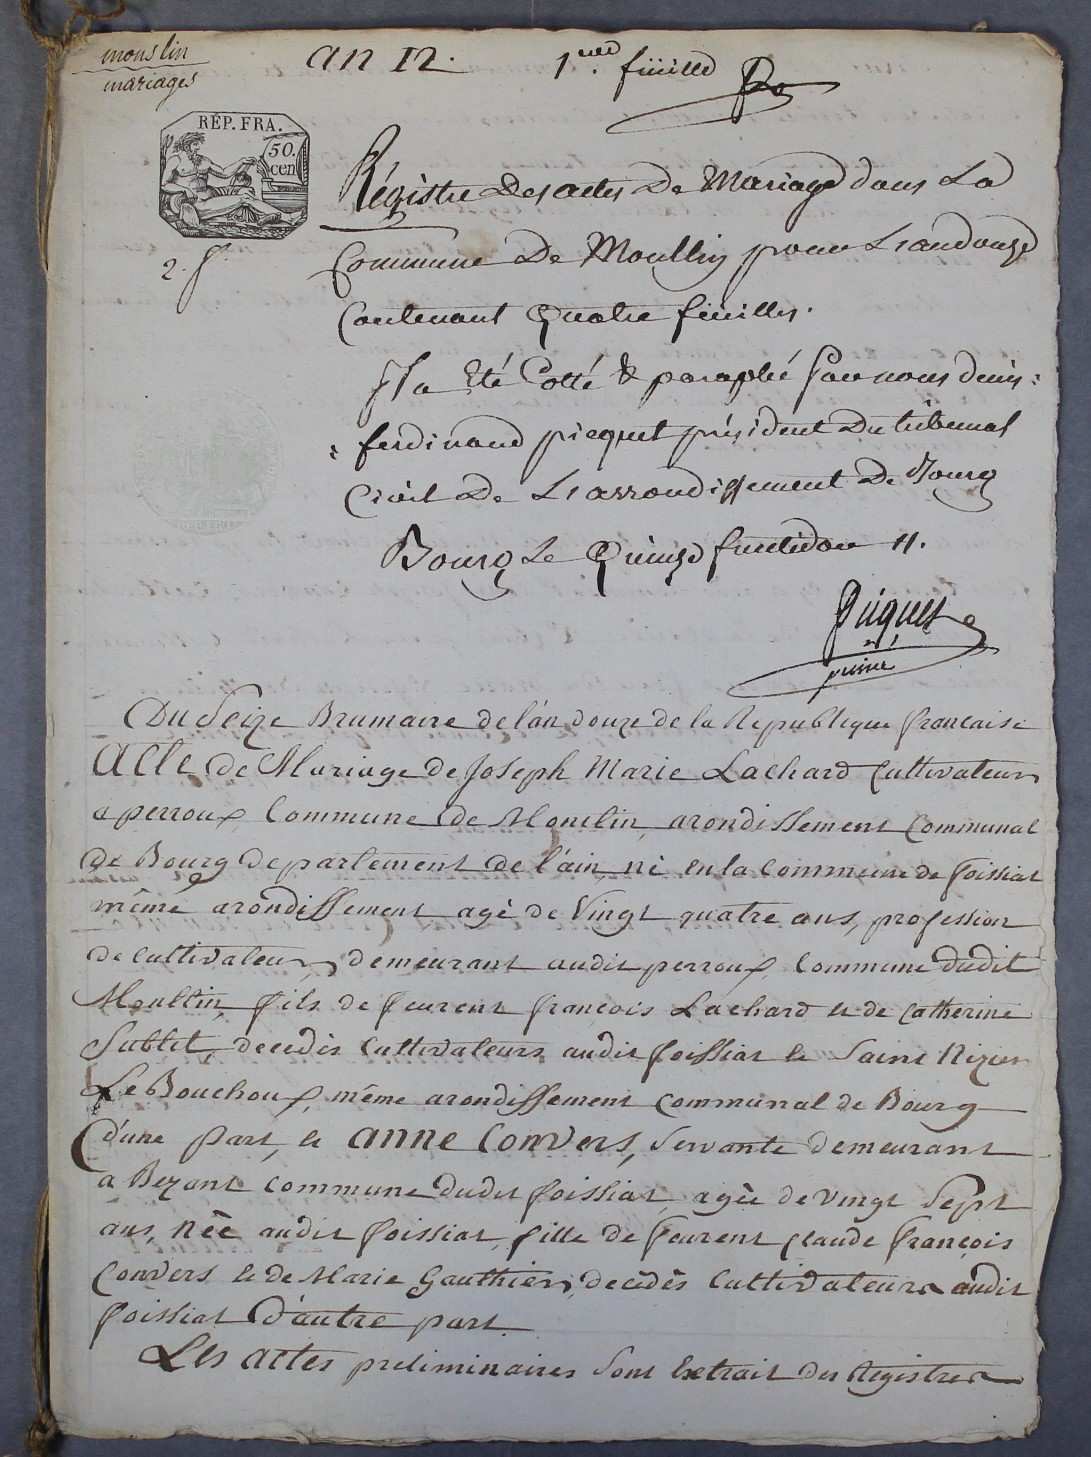 mouslin
mariages
an 12.
1ere. fuille
RÉP. FRA.
50.
cen
2. f.
Régistre des actes De Mariage dans La
Commune De Moullin pour L'an douze
Contenant Quatre fuilles.
Il a Eté Cotté & paraphé par nous denis
ferdinand picquet président Du tribunal
Civil De L'arrondissement De Bourg
Bourg Le Quinze fructidor 11.
Piquet
Du Seize Brumaire de l'an douze de la Republique francaise
Acte de Mariage de Joseph Marie Lachard Cultivateur
a perroux Commune de Monclin, arondissement Communal
de Bourg departement de l'ain, né en la Commune de foissiat
même arondissement agé de Vingt quatre ans, profession
de Cultivateur, demeurant audit perroux Commune dudit
Moullin, fils de feurent françois Lachard et de Catherine
Sublet, decedés Cultivateurs audit foissiat et Saint Nizier
Le Bouchoux, même arondissement Communal de Bourg
d'une part, et Anne Convers, Servante demeurant
a Bezant Commune dudit foissiat, agée de vingt Sept
ans, née audit foissiat, fille de feurent claude François
Convers et de Marie Gauthier, decédés Cultivateurs audit
foissiat d'autre part.
Les actes preliminaires Sont Extrait des Registres